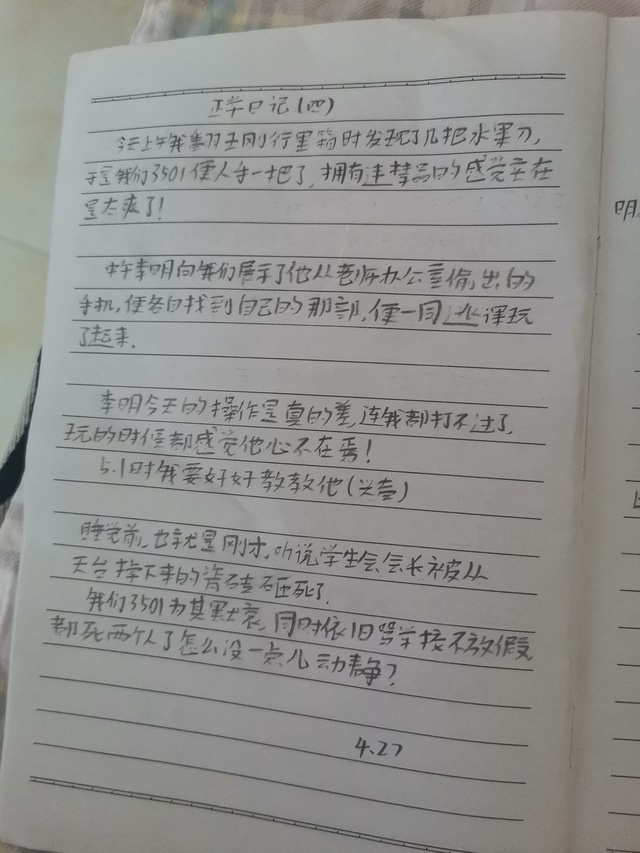 日记(四)
今天上午我翻王刚行李箱时发现了几把水果刀,
于是我们3501便人手一把了,拥有违禁品的感觉实在
是太爽了!
中午李明向我们展示了他从老师办公室偷出的
手机,便各自找到自己的那部,便一同逃课玩
了起来.
李明今天的操作是真的差,连我都打不过了,
玩的时候都感觉他心不在焉!
5.1时我要好好教教他(兴奋)
睡觉前,也就是刚才,听说学生会会长被从
天台掉下来的瓷砖砸死了.
我们3501为其默哀,同时依旧骂学校不放假
都死两个人了怎么没一点儿动静?
4.27
明